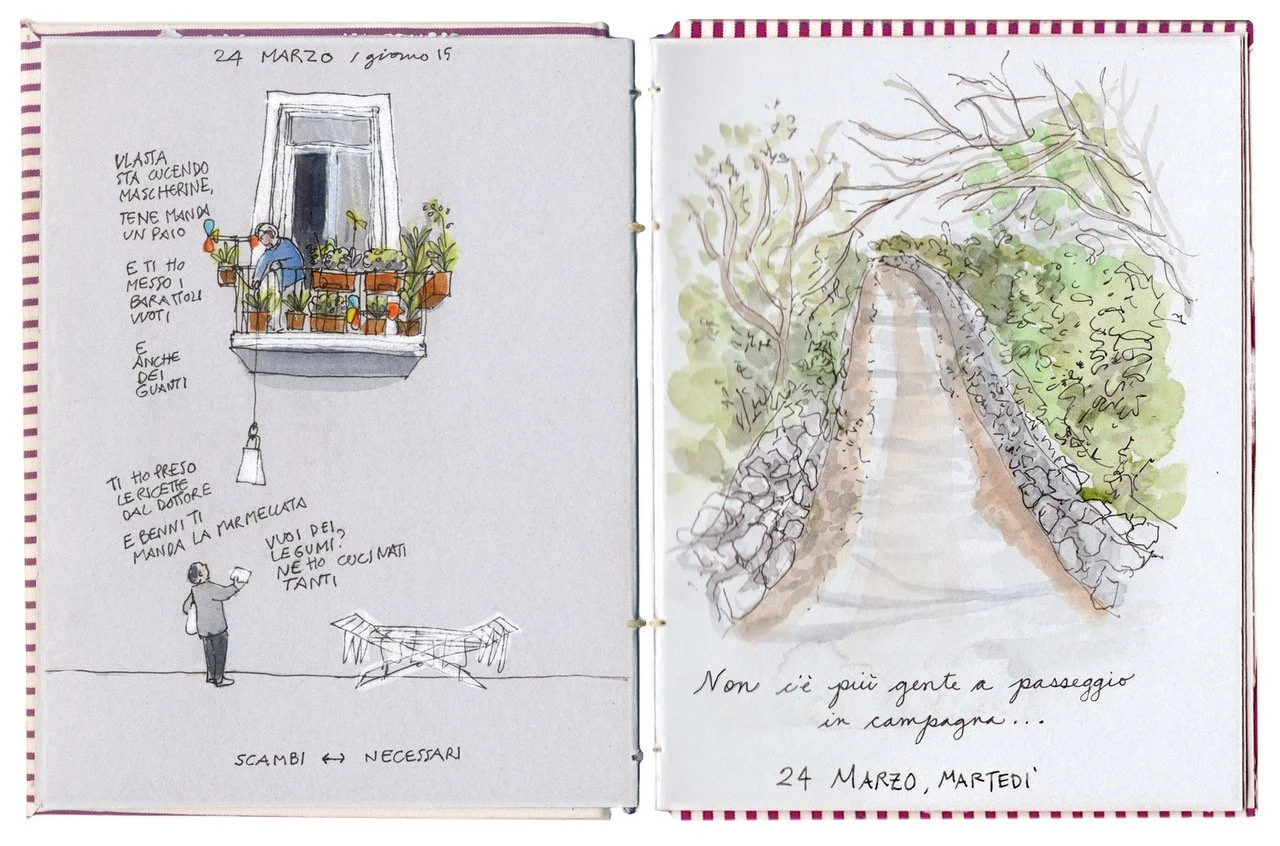 24 MARZO / giorno 15
VLASTA
STA CUCENDO
MASCHERINE,
TENE MANDA
UN PAIO
E TI HO
MESSO I
BARATTOLI
VUOTI
E
ANCHE
DEI
GUANTI
TI HO PRESO
LE RICETTE
DAL DOTTORE
E BENNI TI
MANDA LA MARMELLATA
VUOI DEI
LEGUMI?
NE HO CUCINATI
TANTI
SCAMBI ↔ NECESSARI
Non c'è più gente a passeggio
in campagna...
24 MARZO, MARTEDI'